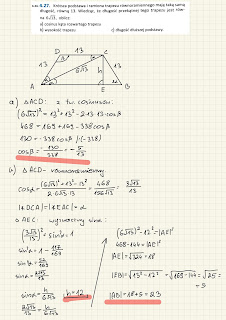 6.27. Krótsza podstawa i ramiona trapezu równoramiennego mają taką samą
długość, równą 13. Wiedząc, że długość przekątnej tego trapezu jest rów-
na 6√13, oblicz:
a) cosinus kąta rozwartego trapezu
b) wysokość trapezu
c) długość dłuższej podstawy.
D 13 C
13 6√13 h 13
A E B
a) △ACD: z tw. cosinusów:
(6√13)² = 13² + 13² - 2·13·13·cosβ
468 = 169 + 169 - 338cosβ
130 = -338cosβ |:(-338)
cosβ = -130/338 = -5/13
b) △ACD - równoramienny
cosα = (6√13)² + 13² - 13² / 2·6√13·13 = 468 / 156√13 = 3√13 / 13
|∢DCA| = |∢EAC| = α
△AEC: wyznaczmy sinα:
(3√13/13)² + sin²α = 1
sin²α = 1 - 117/169
sin²α = 52/169
sinα = 2√13/13
sinα = h/6√13
2√13/13 = h/6√13
h = 12
(6√13)² = 12² + |AE|²
468 - 144 = |AE|²
|AE| = √324 = 18
|EB| = √13² - 12² = √169 - 144 = √25 =
= 5
|AB| = 18 + 5 = 23